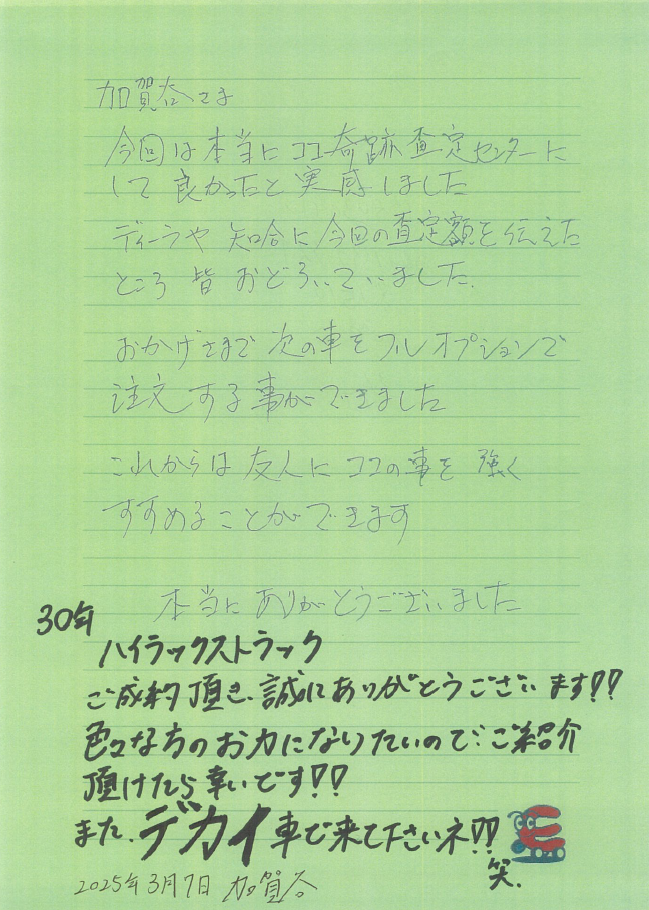 加賀谷さま
今回は本当にココ奇跡査定センターに
して良かったと実感しました
ディーラや知合に今回の査定額を伝えた
ところ皆おどろいていました.
おかげさまで次の車をフルオプションで
注文する事ができました
これからは友人にココの事を強く
すすめることができます
本当にありがとうございました
30年
ハイラックストラック
ご成約頂き、誠にありがとうございます!!
色々な方のお力になりたいので、ご紹介
頂けたら幸いです!!
また、デカイ車で来て下さいネ!!
笑.
2025年3月7日 加賀谷